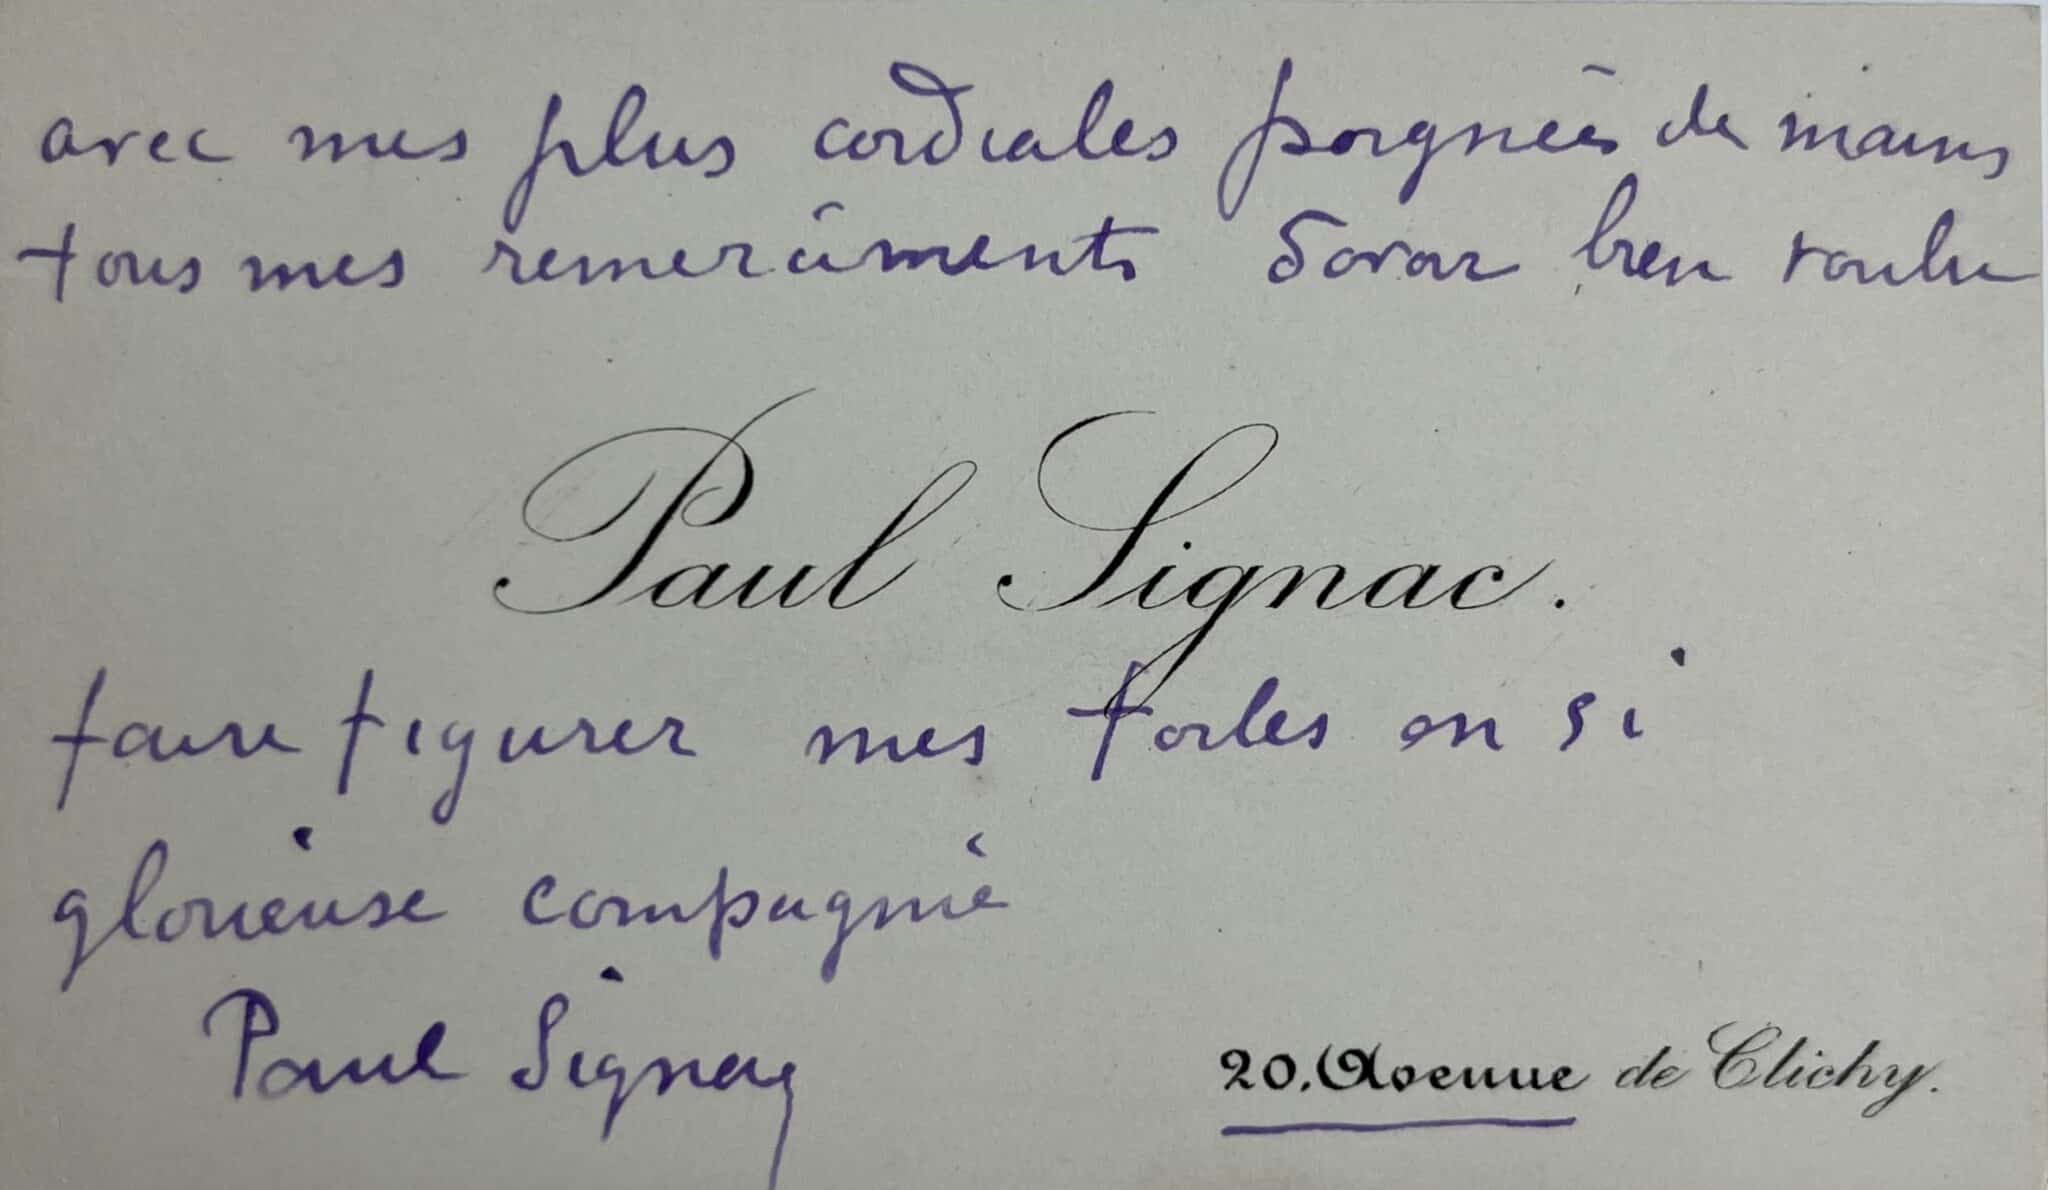 avec mes plus cordiales poignées de mains
tous mes remerciements d'avoir bien voulu
Paul Signac.
faire figurer mes toiles en si
glorieuse compagnie
Paul Signac
20, Avenue de Clichy.